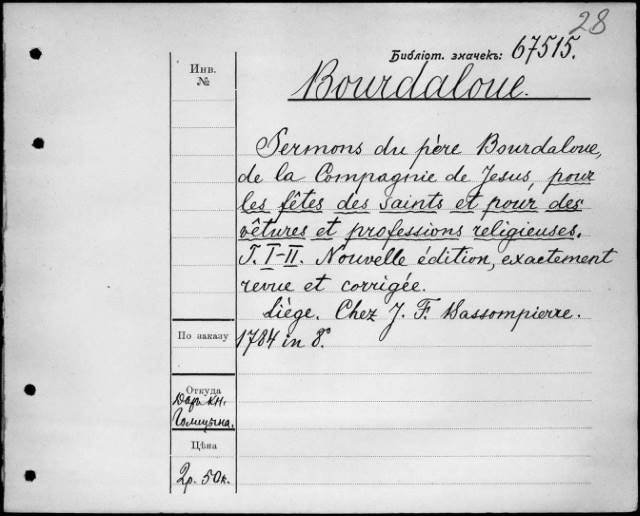 28
Библіот. значекъ: 67515.
Инв.
№
Bourdaloue.
Sermons du père Bourdaloue,
de la Compagnie de Jesus, pour
les fêtes des saints et pour des
vêtures et professions religieuses.
T. I-II. Nouvelle édition, exactement
revue et corrigée.
Liége. Chez J. F. Bassompierre.
По заказу
1784 in 8°.
Откуда
Даръ кн.
Голицына.
Цѣна
2р. 50к.